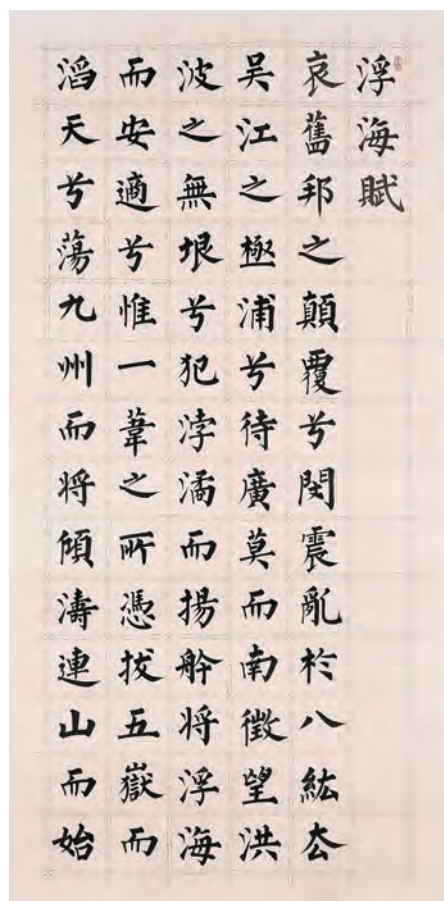 浮海賦
哀舊邦之顛覆兮閔震亂於八紘厺
吴江之極浦兮待廣莫而南徵望洪
波之無垠兮犯浡潏而揚舲将浮海
而安適兮惟一葦之所憑拔五嶽而
滔天兮蕩九州而将傾濤連山而始